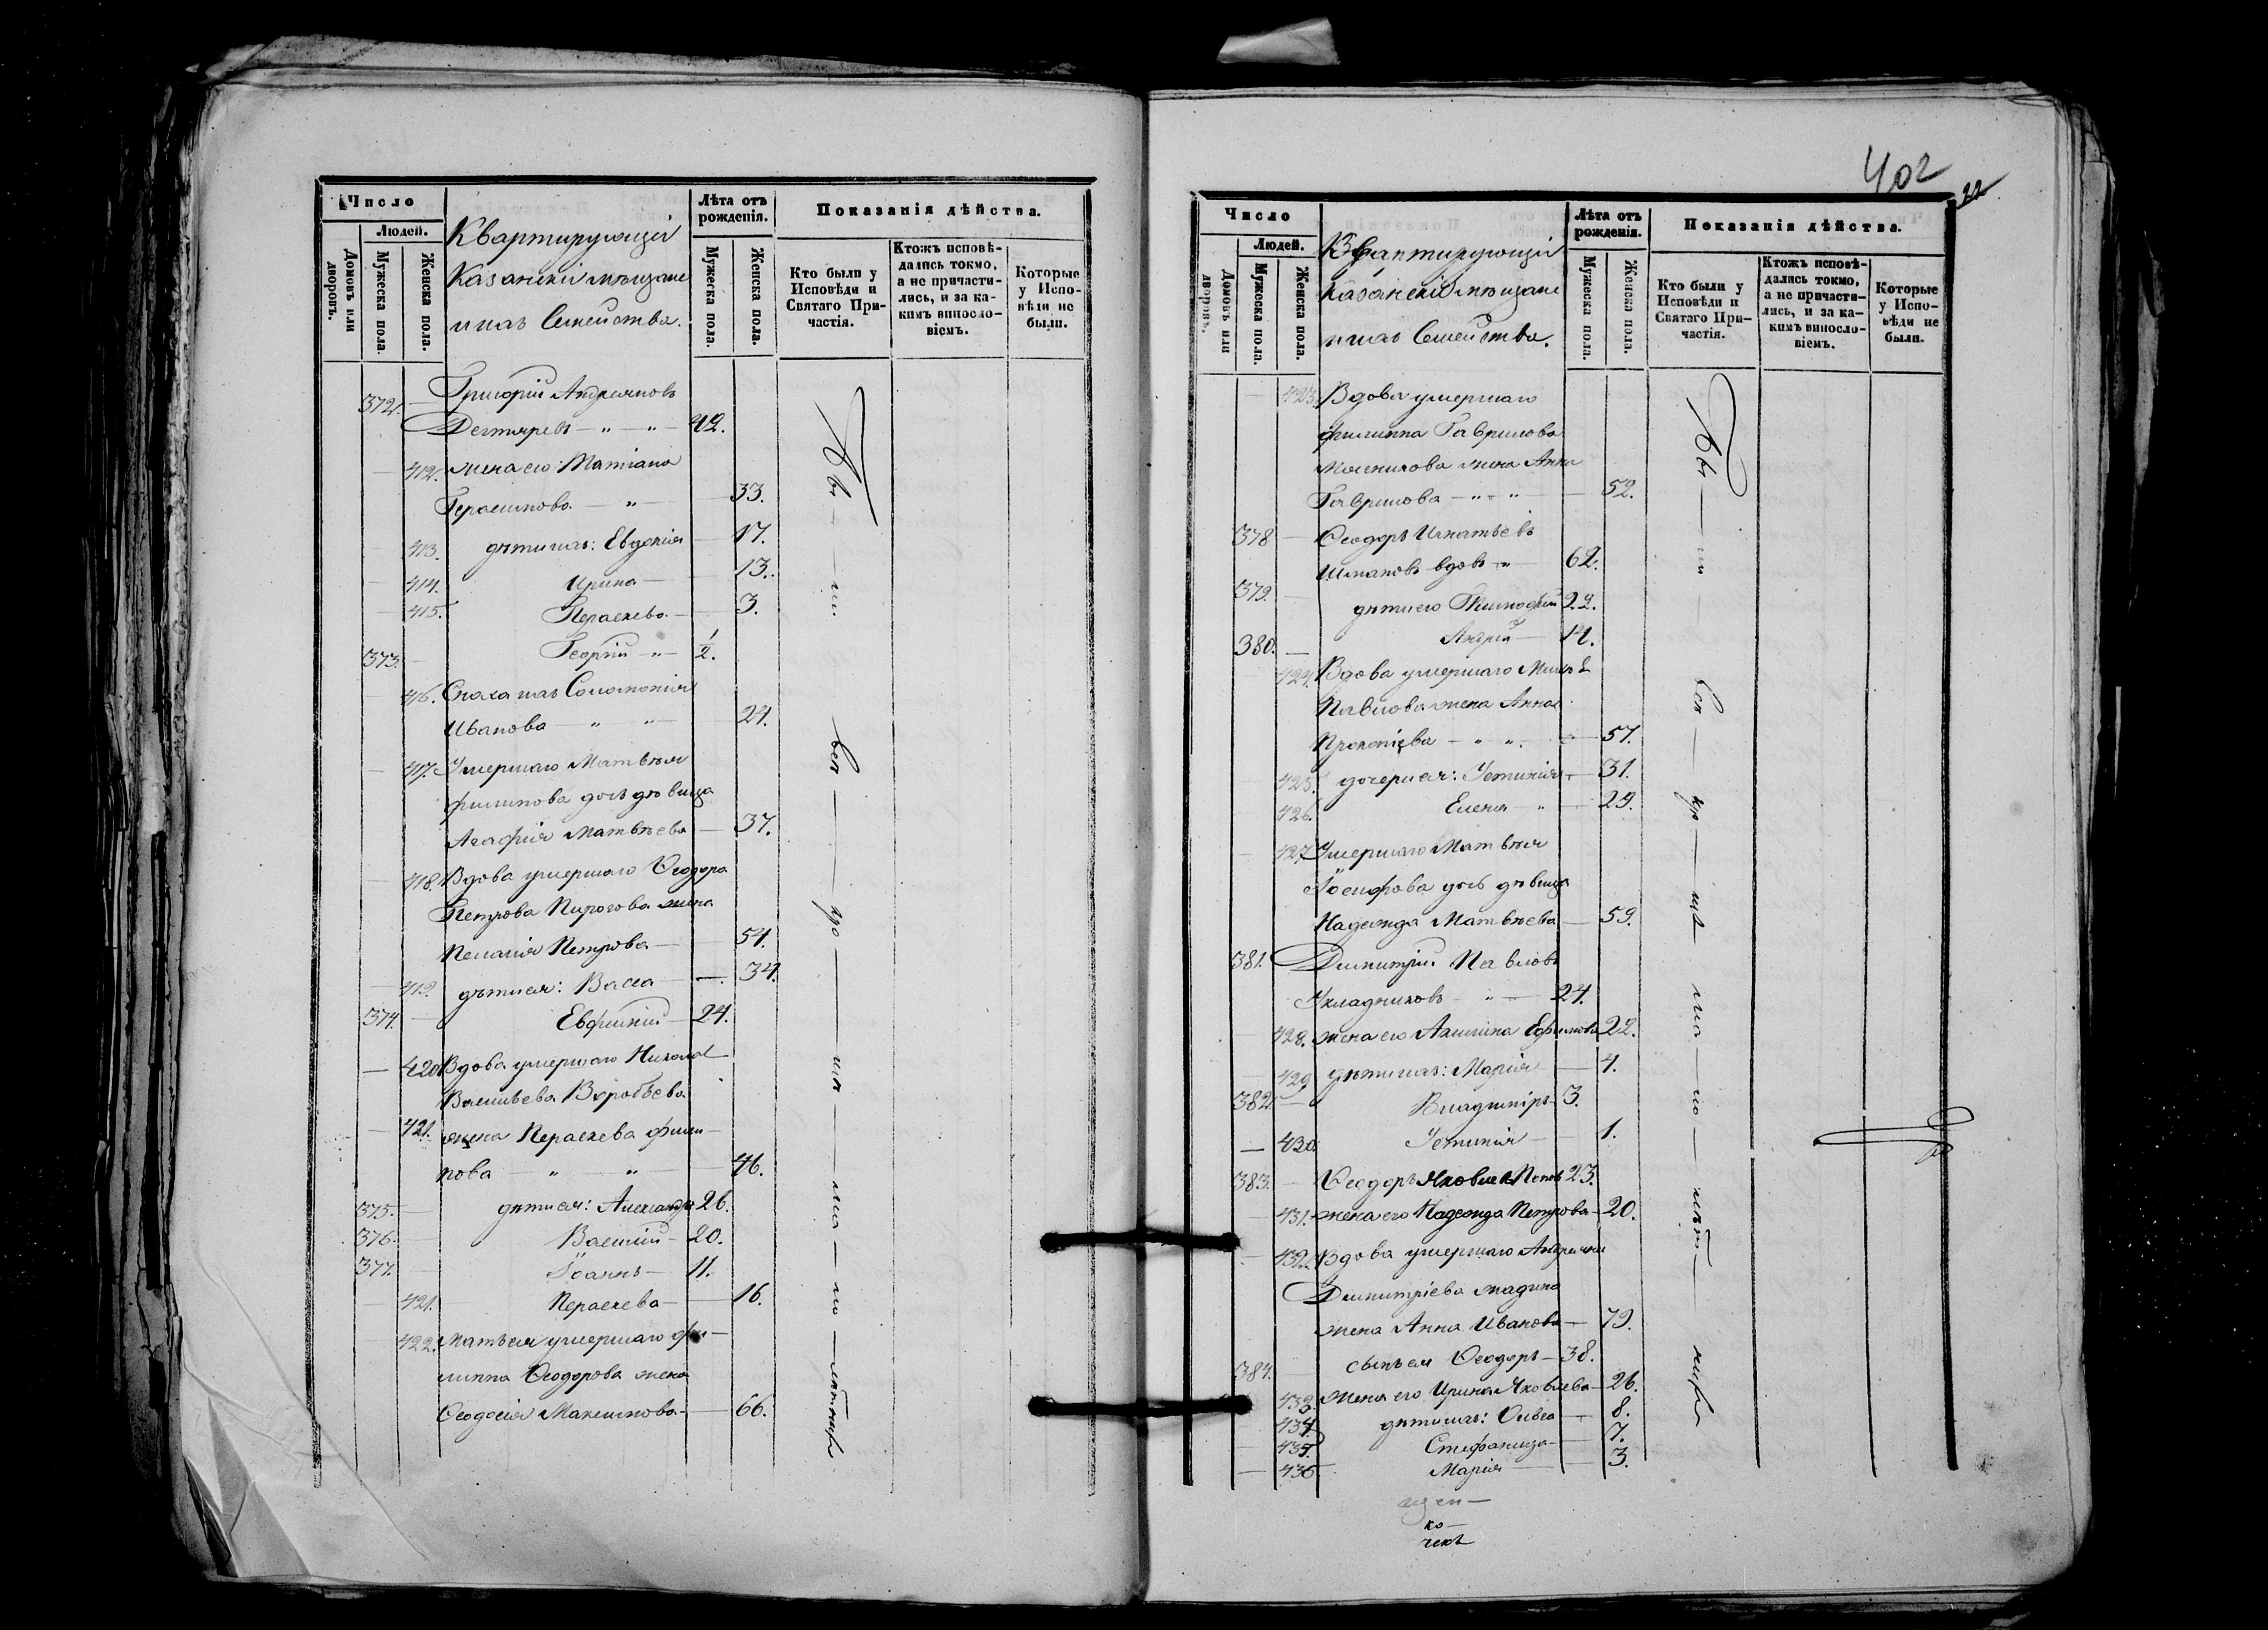 Число
Людей.
Домовъ или дворовъ.
Мужеска пола.
Женска пола.
Квартирующіи
Казанскіи мѣщане
и ихъ Семейства.
Лѣта отъ рожденія.
Мужеска пола.
Женска пола.
Показанія дѣйства.
Кто были у Исповѣди и Святаго Причастія.
Ктожъ исповѣдались токмо, а не причастились, и за какимъ винословіемъ.
Которые у Исповѣди не были.
372. Григорій Андреяновъ
Дехтяревъ — " — " — 42.
412. жена его Татіана
Герасимова — " — 33.
413. дѣти ихъ: Евдокія — 17.
414. Ирина — 13.
415. Параскева — 3.
373. Георгій — " — 1/2.
416. Сноха ихъ Соломонія
Иванова — " — " — 24.
417. Умершаго Матвѣя
Филипова дочь дѣвица
Агафія Матвѣева — 37.
418. Вдова умершаго Ѳеодора
Петрова Пирогова жена
Пелагія Петрова — 54.
419. дѣти ея: Васса — 34.
374. Евфимій — 24.
420. Вдова умершаго Николая
Васильева Воробьева
421. жена Параскева Фили-
пова — " — " — 46.
375. дѣти ея: Александръ 26.
376. Василій — 20.
377. Іоаннъ — 11.
421. Параскева — 16.
422. Мать ея умершаго Фи-
липпа Ѳеодорова жена
Ѳеодосія Максимова — 66.
402
22
Число
Людей.
Домовъ или дворовъ.
Мужеска пола.
Женска пола.
Квартирующіи
Казанскіи мѣщане
и ихъ Семейства.
Лѣта отъ рожденія.
Мужеска пола.
Женска пола.
Показанія дѣйства.
Кто были у Исповѣди и Святаго Причастія.
Ктожъ исповѣдались токмо, а не причастились, и за какимъ винословіемъ.
Которые у Исповѣди не были.
423. Вдова умершаго
Филиппа Гаврилова
жена Анна
Гаврилова — " — " — 52.
378 Ѳеодоръ Игнатьевъ
вдовъ — " — 62.
379. дѣти его Тимофей 22.
380. Андрей — 14.
424. Вдова умершаго
Павлова жена Анна
Прокопіева — " — " — 57.
425. дочери ея: Устинія — 31.
426. Елена — " — 29.
427. Умершаго Матвѣя
Іосифова дочь дѣвица
Надежда Матвѣева — 59.
381. Димитрій Павловъ
Укладниковъ — " — 24.
428. жена его Акилина Ефимова 22.
429 дѣти ихъ: Марія — 4.
382. Владиміръ — 3.
430. Устинія — 1.
383. Ѳеодоръ Яковлевъ Поповъ 23.
431. жена его Надежда Петрова — 20.
432. Вдова умершаго Андреяна
Димитріева
жена Анна Иванова — 79.
384. сынъ ея Ѳеодоръ — 38.
433. Жена его Ирина Яковлева — 26.
434. дѣти ихъ: — 8.
435. Стефанида — 7.
436. Марія — 3.